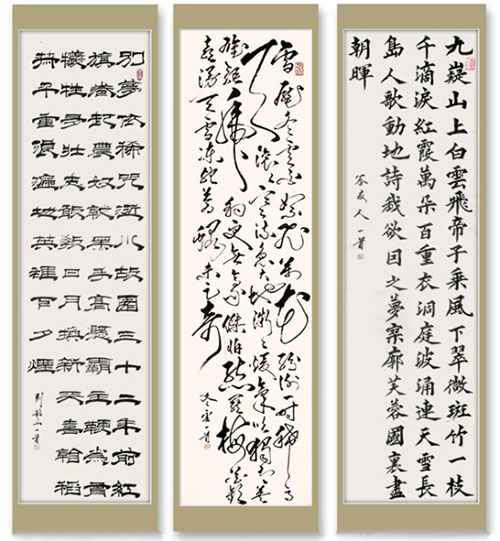 九嶷山上白雲飛帝子乘風下翠微斑竹一枝
千滴淚紅霞萬朵百重衣洞庭波涌連天雪長
島人歌動地詩我欲因之夢寥廓芙蓉國裏盡
朝暉
答友人一首
雪壓冬雲白絮飛萬花紛謝一時稀高
天滾滾寒流急大地微微暖氣吹獨有英
雄驅虎豹更無豪傑怕熊羆梅花歡
喜漫天雪凍死蒼蠅未足奇
冬雲一首
別夢依稀咒逝川故園三十二年前紅
旗卷起農奴戟黑手高懸霸主鞭爲有
犧牲多壯志敢教日月換新天喜看稻
菽千重浪遍地英雄下夕煙
到韶山一首